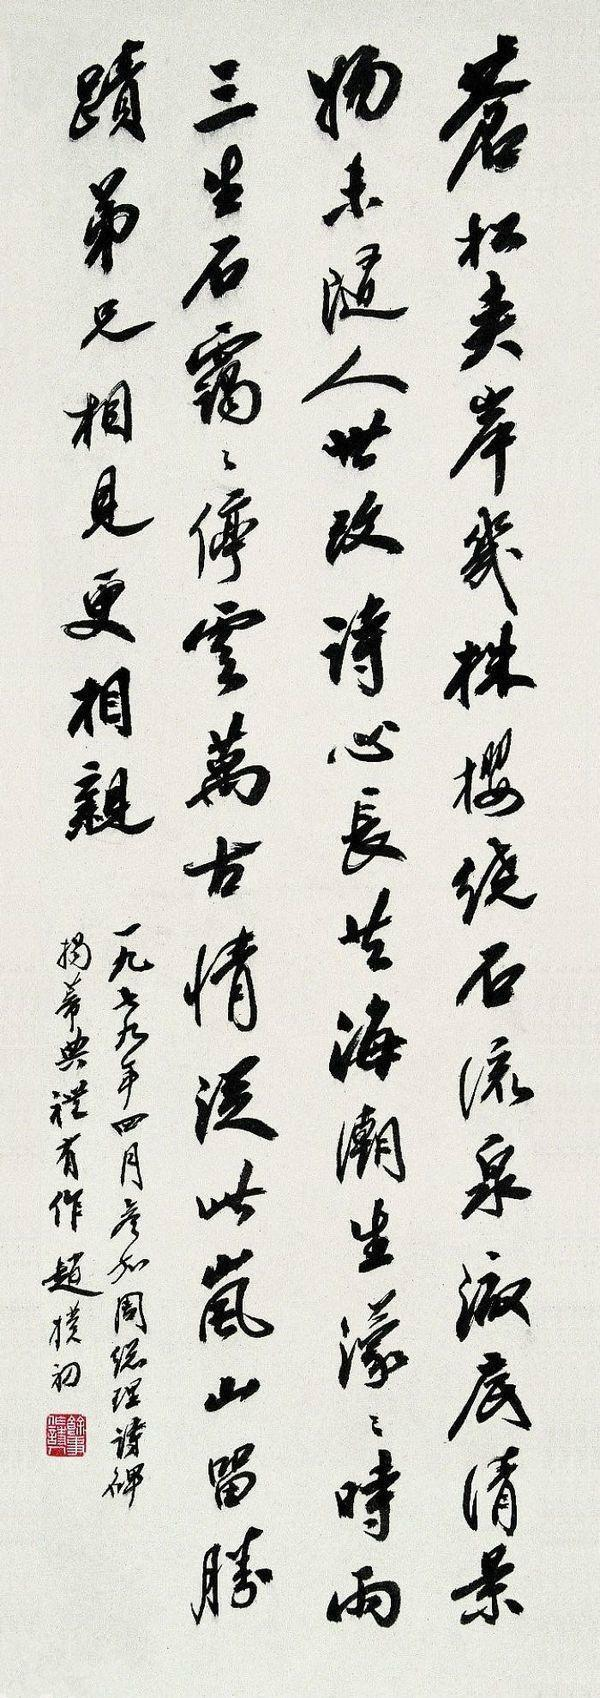 蒼松夾岸幾株櫻繞石流泉澈底清景
物未隨人世改詩心長共海潮生濛々時雨
三生石靄々停雲萬古情從此嵐山留勝
蹟弟兄相見更相親
一九七九年四月參加周總理詩碑
揭幕典禮有作 趙樸初